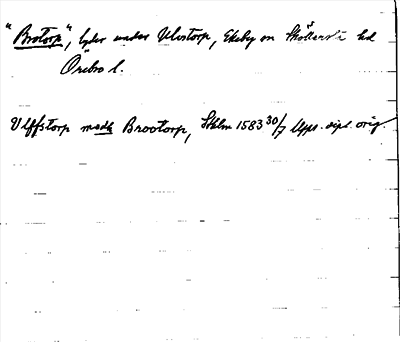 "Brotorp", lyder under Ulvstorp, Ekeby sn Sköllersta hd
Örebro l.
Ulffstorp medh Brootorp, Sthlm 1583 30/7 Upps. dipl. orig.